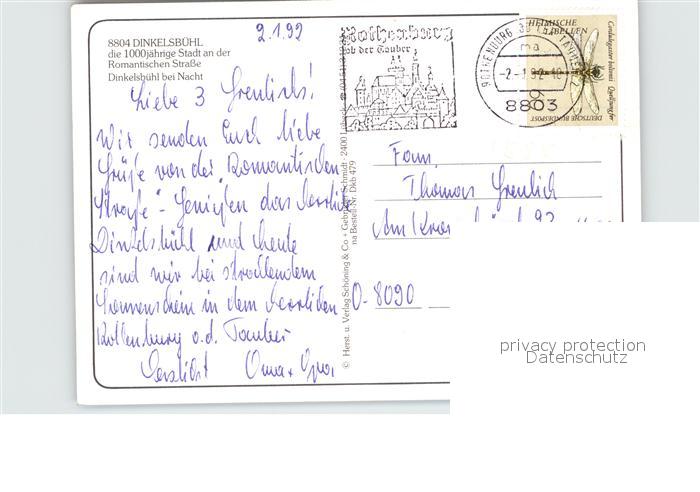 8804 DINKELSBÜHL
die 1000jährige Stadt an der
Romantischen Straße
Dinkelsbühl bei Nacht
2.1.92
Liebe 3
Wir senden Euch liebe
Grüße von der "Romantischen
Straße" - Genießen das herrliche
Dinkelsbühl und heute
sind wir bei strahlendem
Sonnenschein in dem herrlichen
Rothenburg o.d. Tauber
Herzlichst Oma + Opa
© Herst. u. Verlag Schöning & Co + Gebrüder Schmidt · 2400 Lübeck
na Bestell-Nr. Dkb 479
Rothenburg
ob der Tauber
ROTHENBURG OB DER TAUBER
ma
-2.-1.92
8803
HEIMISCHE
LIBELLEN
Cordulegaster bidentatus
DEUTSCHE BUNDESPOST
60
Fam.
Thomas
Am
O-8090
privacy protection
Datenschutz